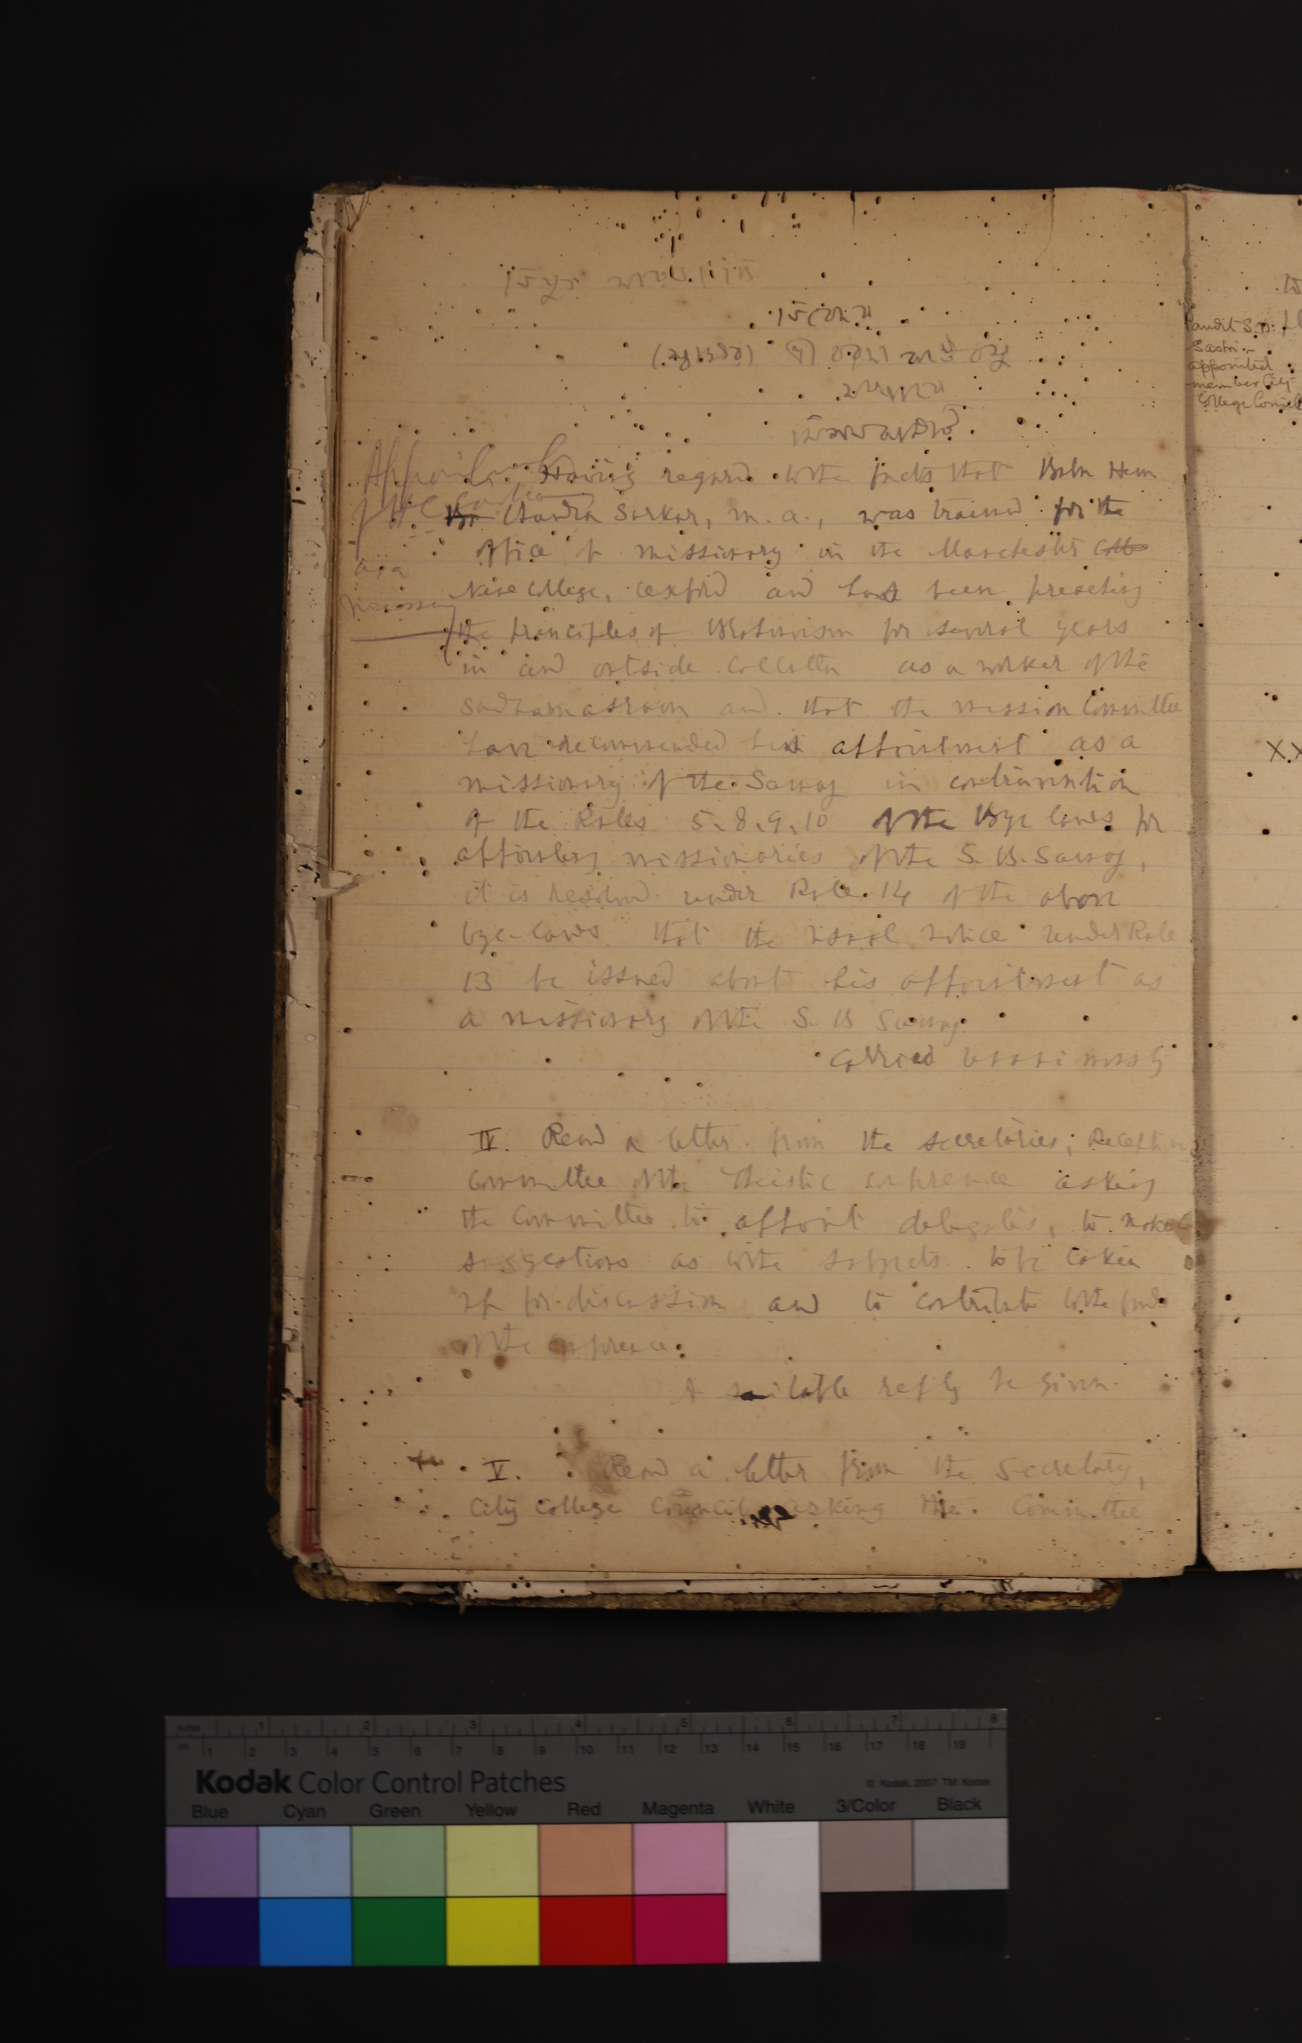 Having regard to the facts that Babu Hem
Chandra Sarkar, M.A., was trained for the
office of missionary in the Manchester
New College, Oxford and has been preaching
the principles of Brahmoism for several years
in and outside Calcutta as a worker of the
Sadhanasram and that the mission Committee
have recommended his appointment as a
missionary of the Samaj in contravention
of the Rules 5, 8, 9, 10 of the Bye laws for
appointing missionaries of the S. B. Samaj,
it is resolved under Rule 14 of the above
bye-laws that the usual notice under Rule
13 be issued about his appointment as
a missionary of the S. B. Samaj.
Carried unanimously
IV. Read a letter from the secretaries, Reception
Committee of the Theistic Conference asking
the Committee to appoint delegates, to make
suggestions as to the subjects to be taken
up for discussion and to contribute to the funds
of the conference.
A suitable reply be given.
V. Read a letter from the Secretary,
City College Council asking the Committee
Appointment
of H C Sarkar
as a
missionary
Pandit S. N.
Sastri
appointed
member City
College Council
XX
Kodak Color Control Patches
© Kodak, 2007 TM: Kodak
Blue Cyan Green Yellow Red Magenta White 3/Color Black
inches 1 2 3 4 5 6 7 8
cm 1 2 3 4 5 6 7 8 9 10 11 12 13 14 15 16 17 18 19